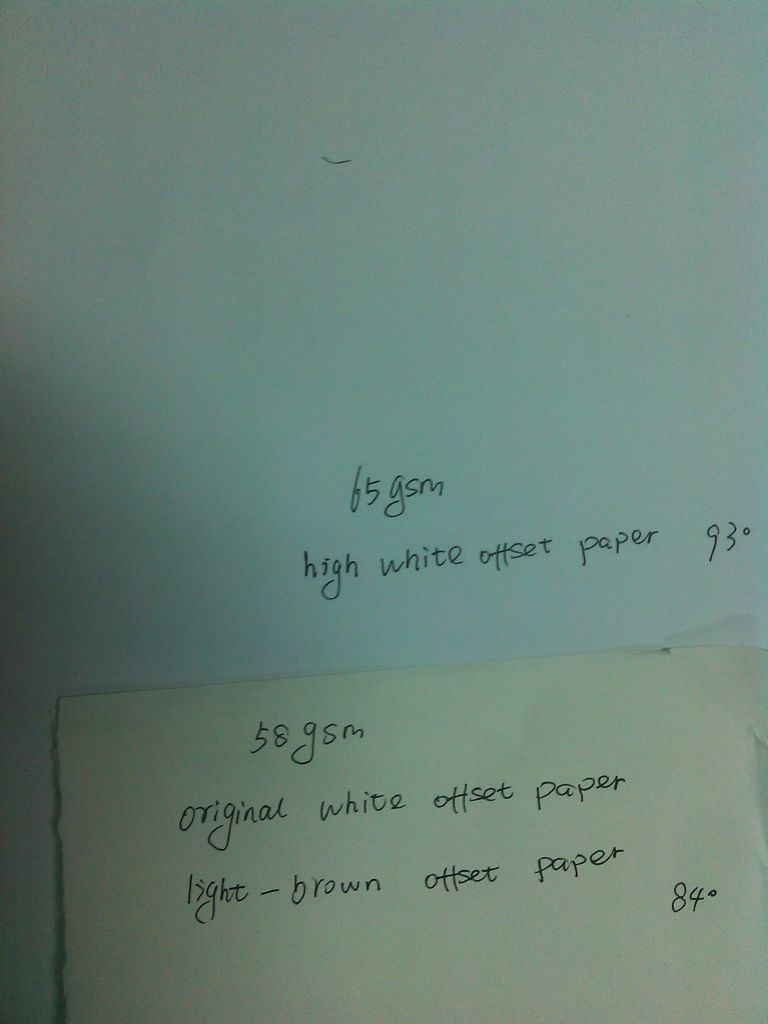 65gsm
high white offset paper 93°
58gsm
original white offset paper
light-brown offset paper
84°